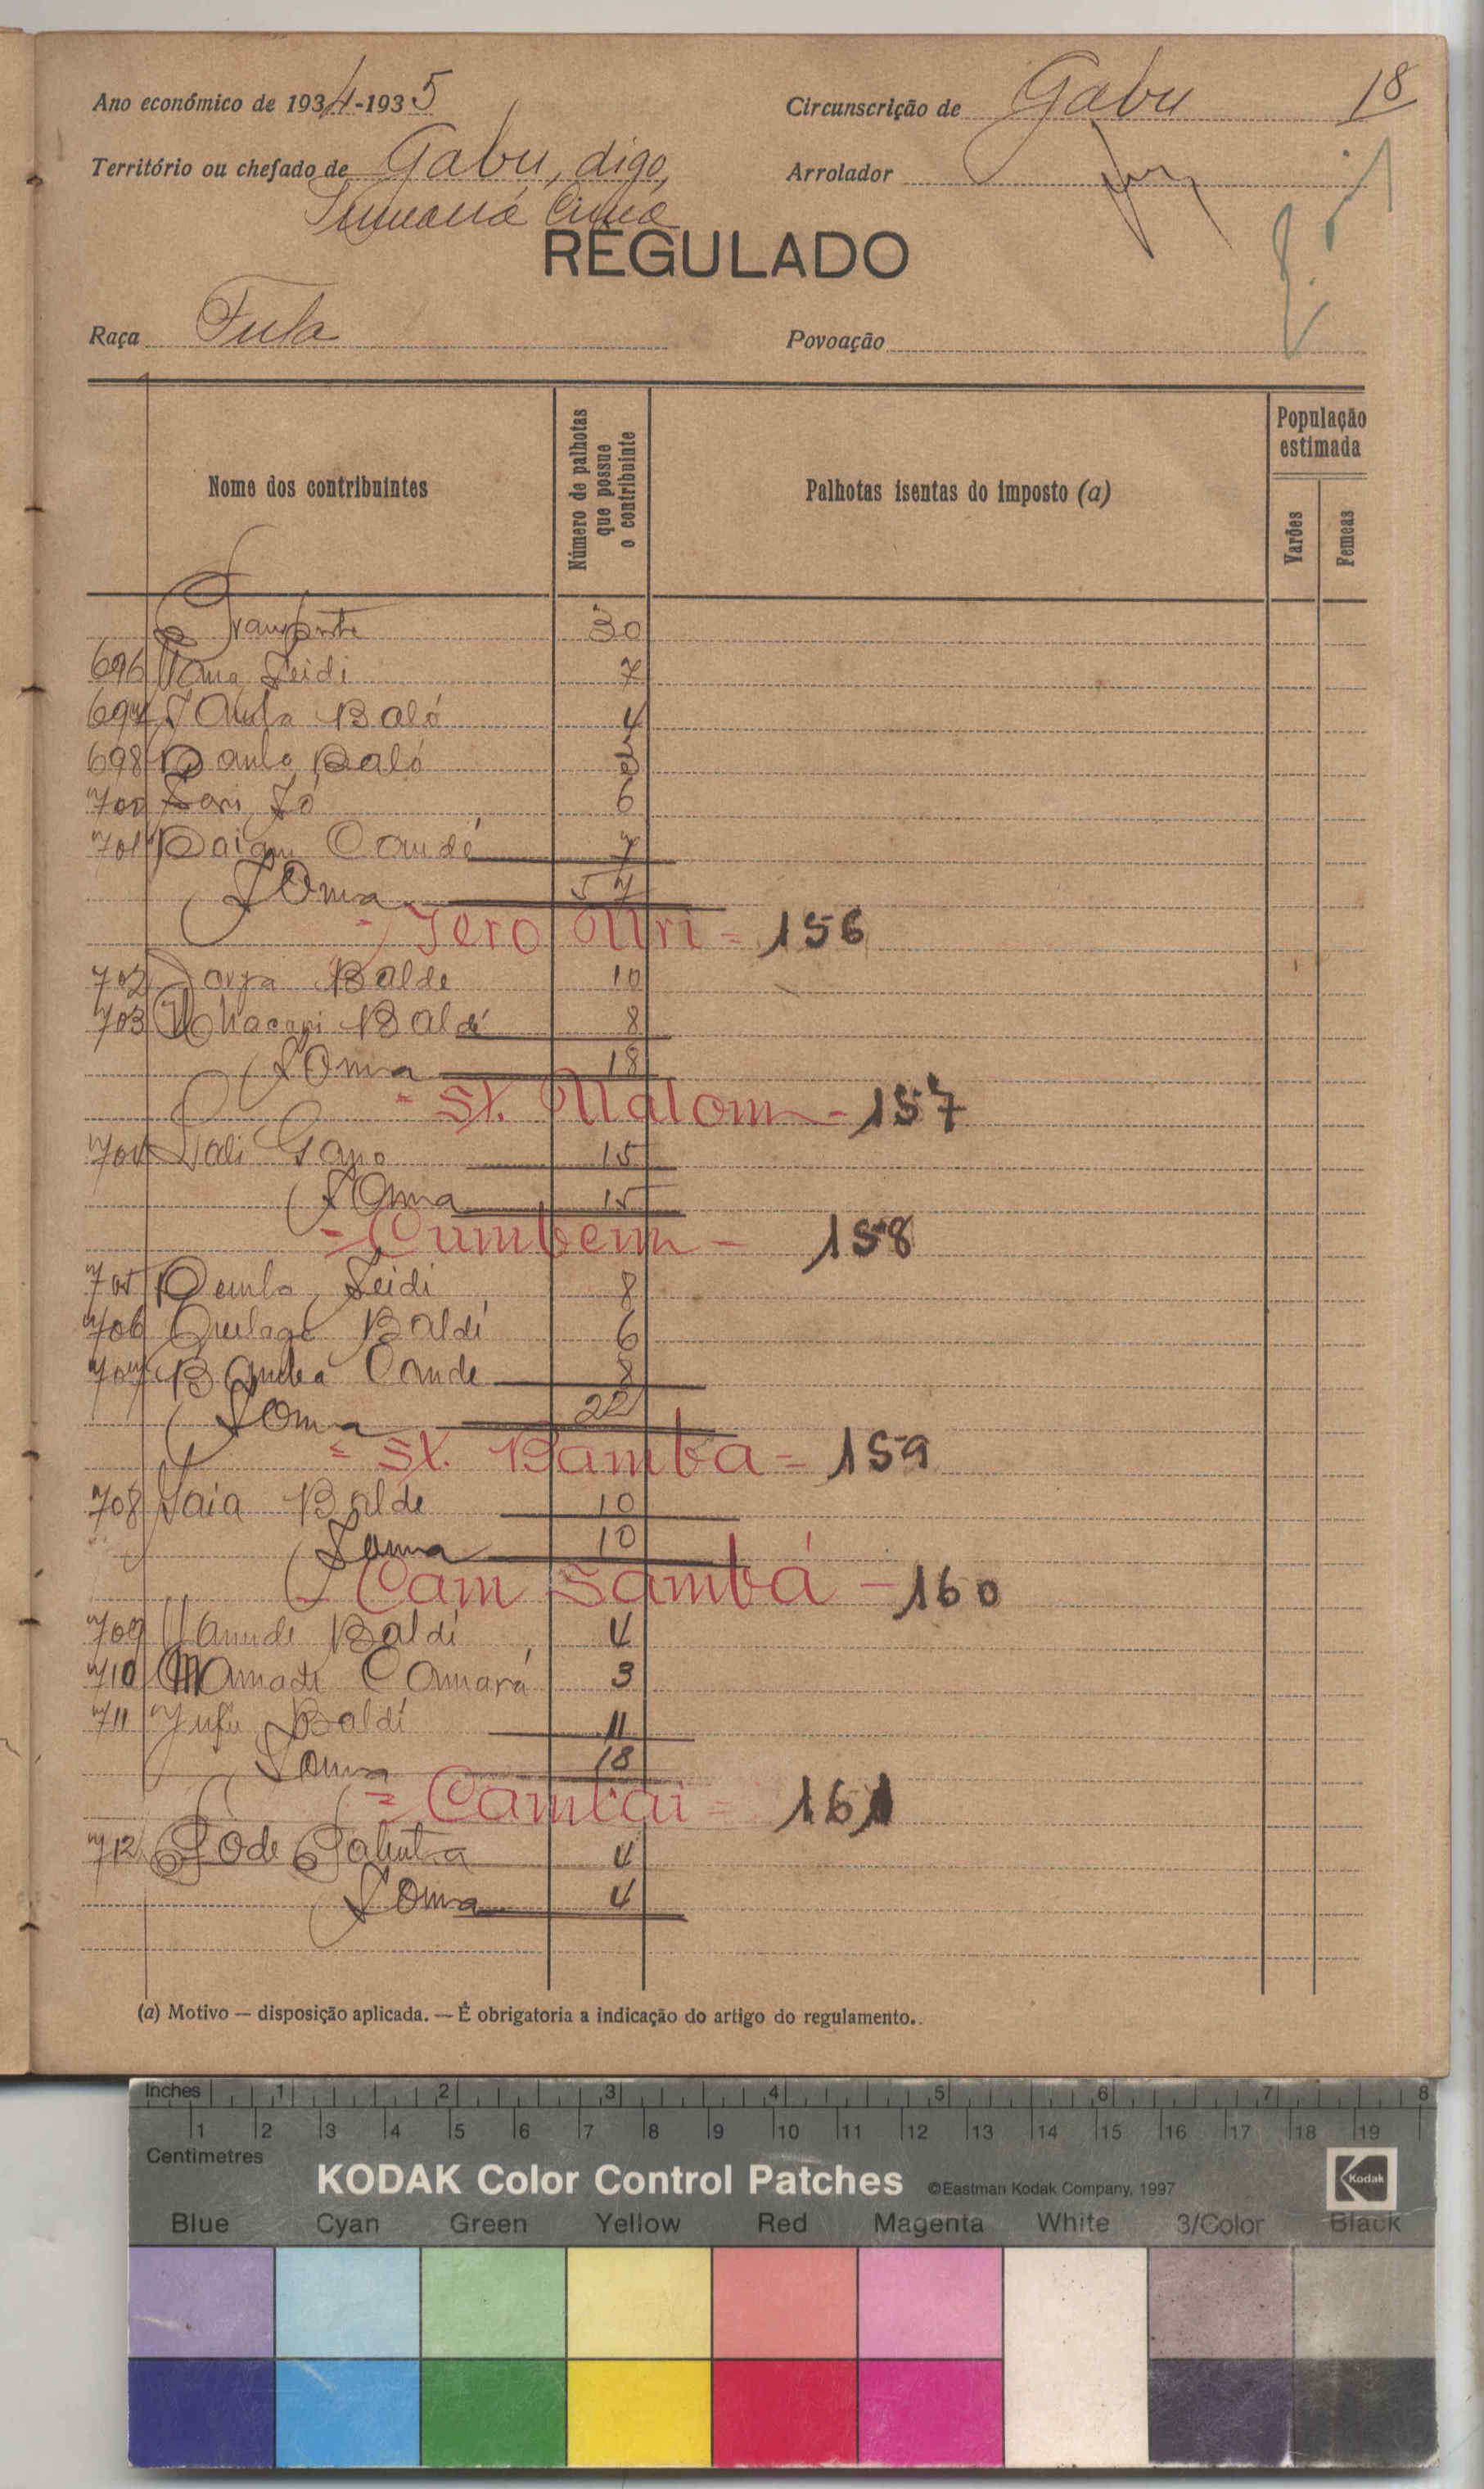 Ano económico de 1934-1935
Circunscrição de Gabu 18
Território ou chefado de Gabu, digo,
Arrolador
REGULADO
Raça Fula
Povoação
Nome dos contribuintes
Número de palhotas que possue o contribuinte
Palhotas isentas do imposto (a)
População estimada
Varões
Femeas
Transporte 30
696 Seidi 7
697 Baló 4
698 Baló
700 Só 6
701 Candé 7
Soma 57
= Jero Uri = 156
702 Balde 10
703 Baldé 8
Soma 18
= st. Malom - 157
704 Gano 15
Soma 15
= Cumbem - 158
705 Demba Seidi 8
706 Baldé 6
707 Cande 8
Soma 22
= st. Bamba = 159
708 Balde 10
Soma 10
- Cam Sambá - 160
709 Baldé 4
710 Mamadi Camará 3
711 Baldé 11
Soma 18
= Cambai = 161
712 4
Soma 4
(a) Motivo — disposição aplicada. — É obrigatoria a indicação do artigo do regulamento..
Inches 1 2 3 4 5 6 7 8
1 2 3 4 5 6 7 8 9 10 11 12 13 14 15 16 17 18 19
Centimetres
KODAK Color Control Patches ©Eastman Kodak Company, 1997 Kodak
Blue Cyan Green Yellow Red Magenta White 3/Color Black